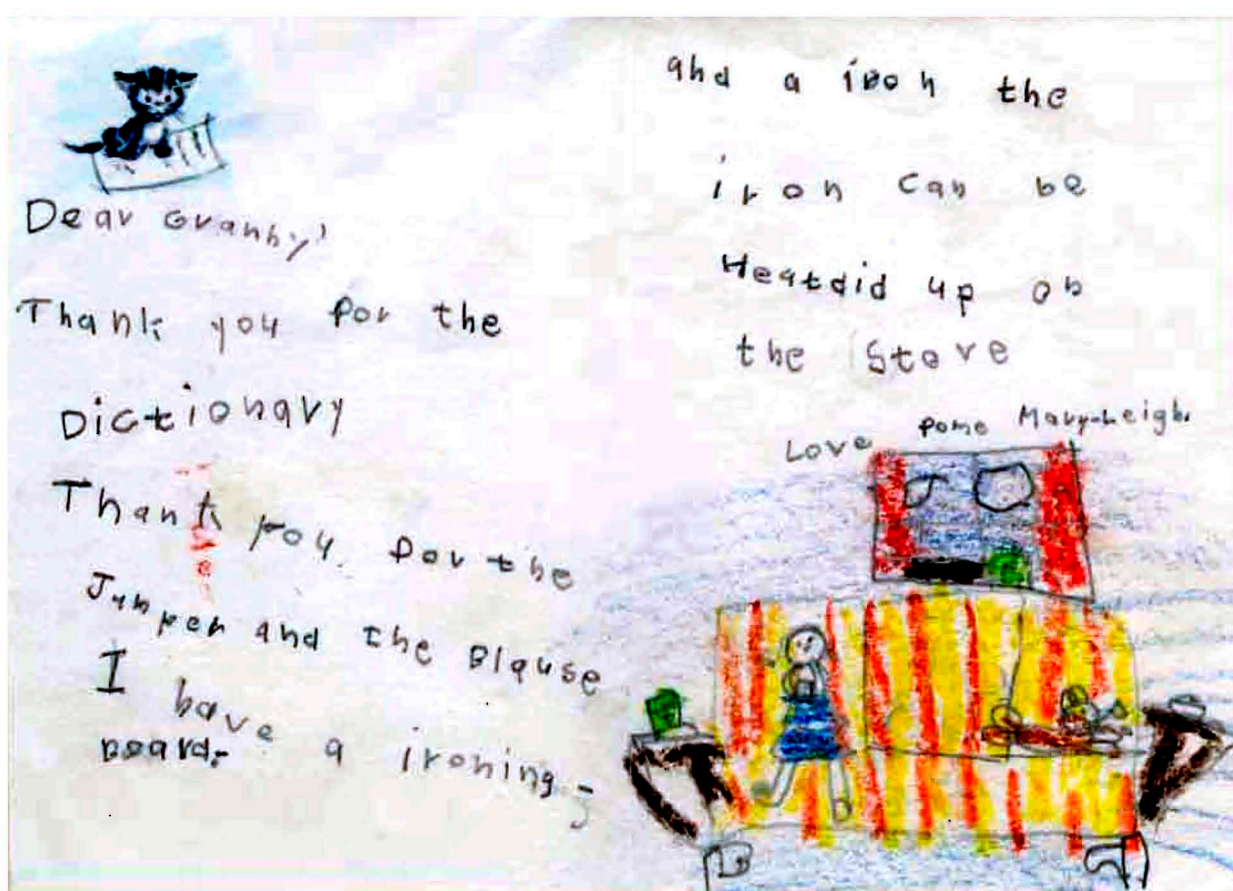 Dear Granny,
Thank you for the
Dictionary
Thank you for the
Jumper and the Blause
I have a ironing-
Board.
and a iron the
iron can be
Heatdid up on
the Stove
Love fome Mary-Leigh.